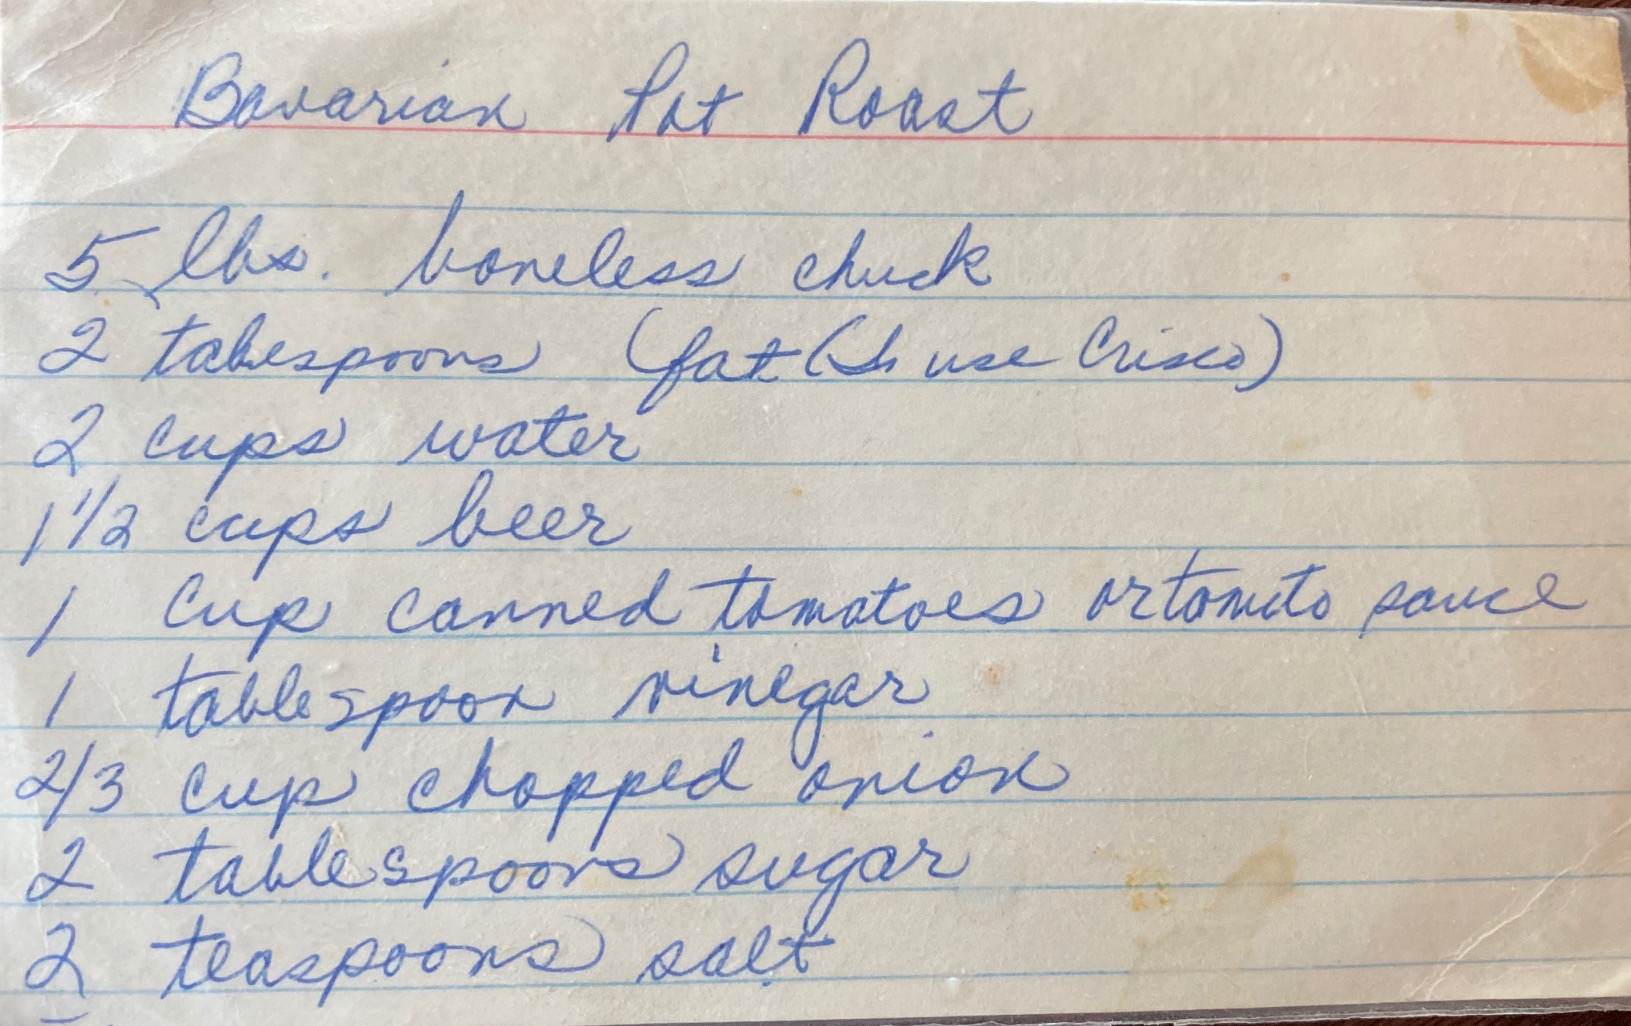 Bavarian Pot Roast
5 lbs. boneless chuck
2 tabespoons (fat (I use Crisco)
2 cups water
1 1/2 cups beer
1 cup canned tomatoes or tomato sauce
1 tablespoon vinegar
2/3 cup chopped onion
2 tablespoons sugar
2 teaspoons salt